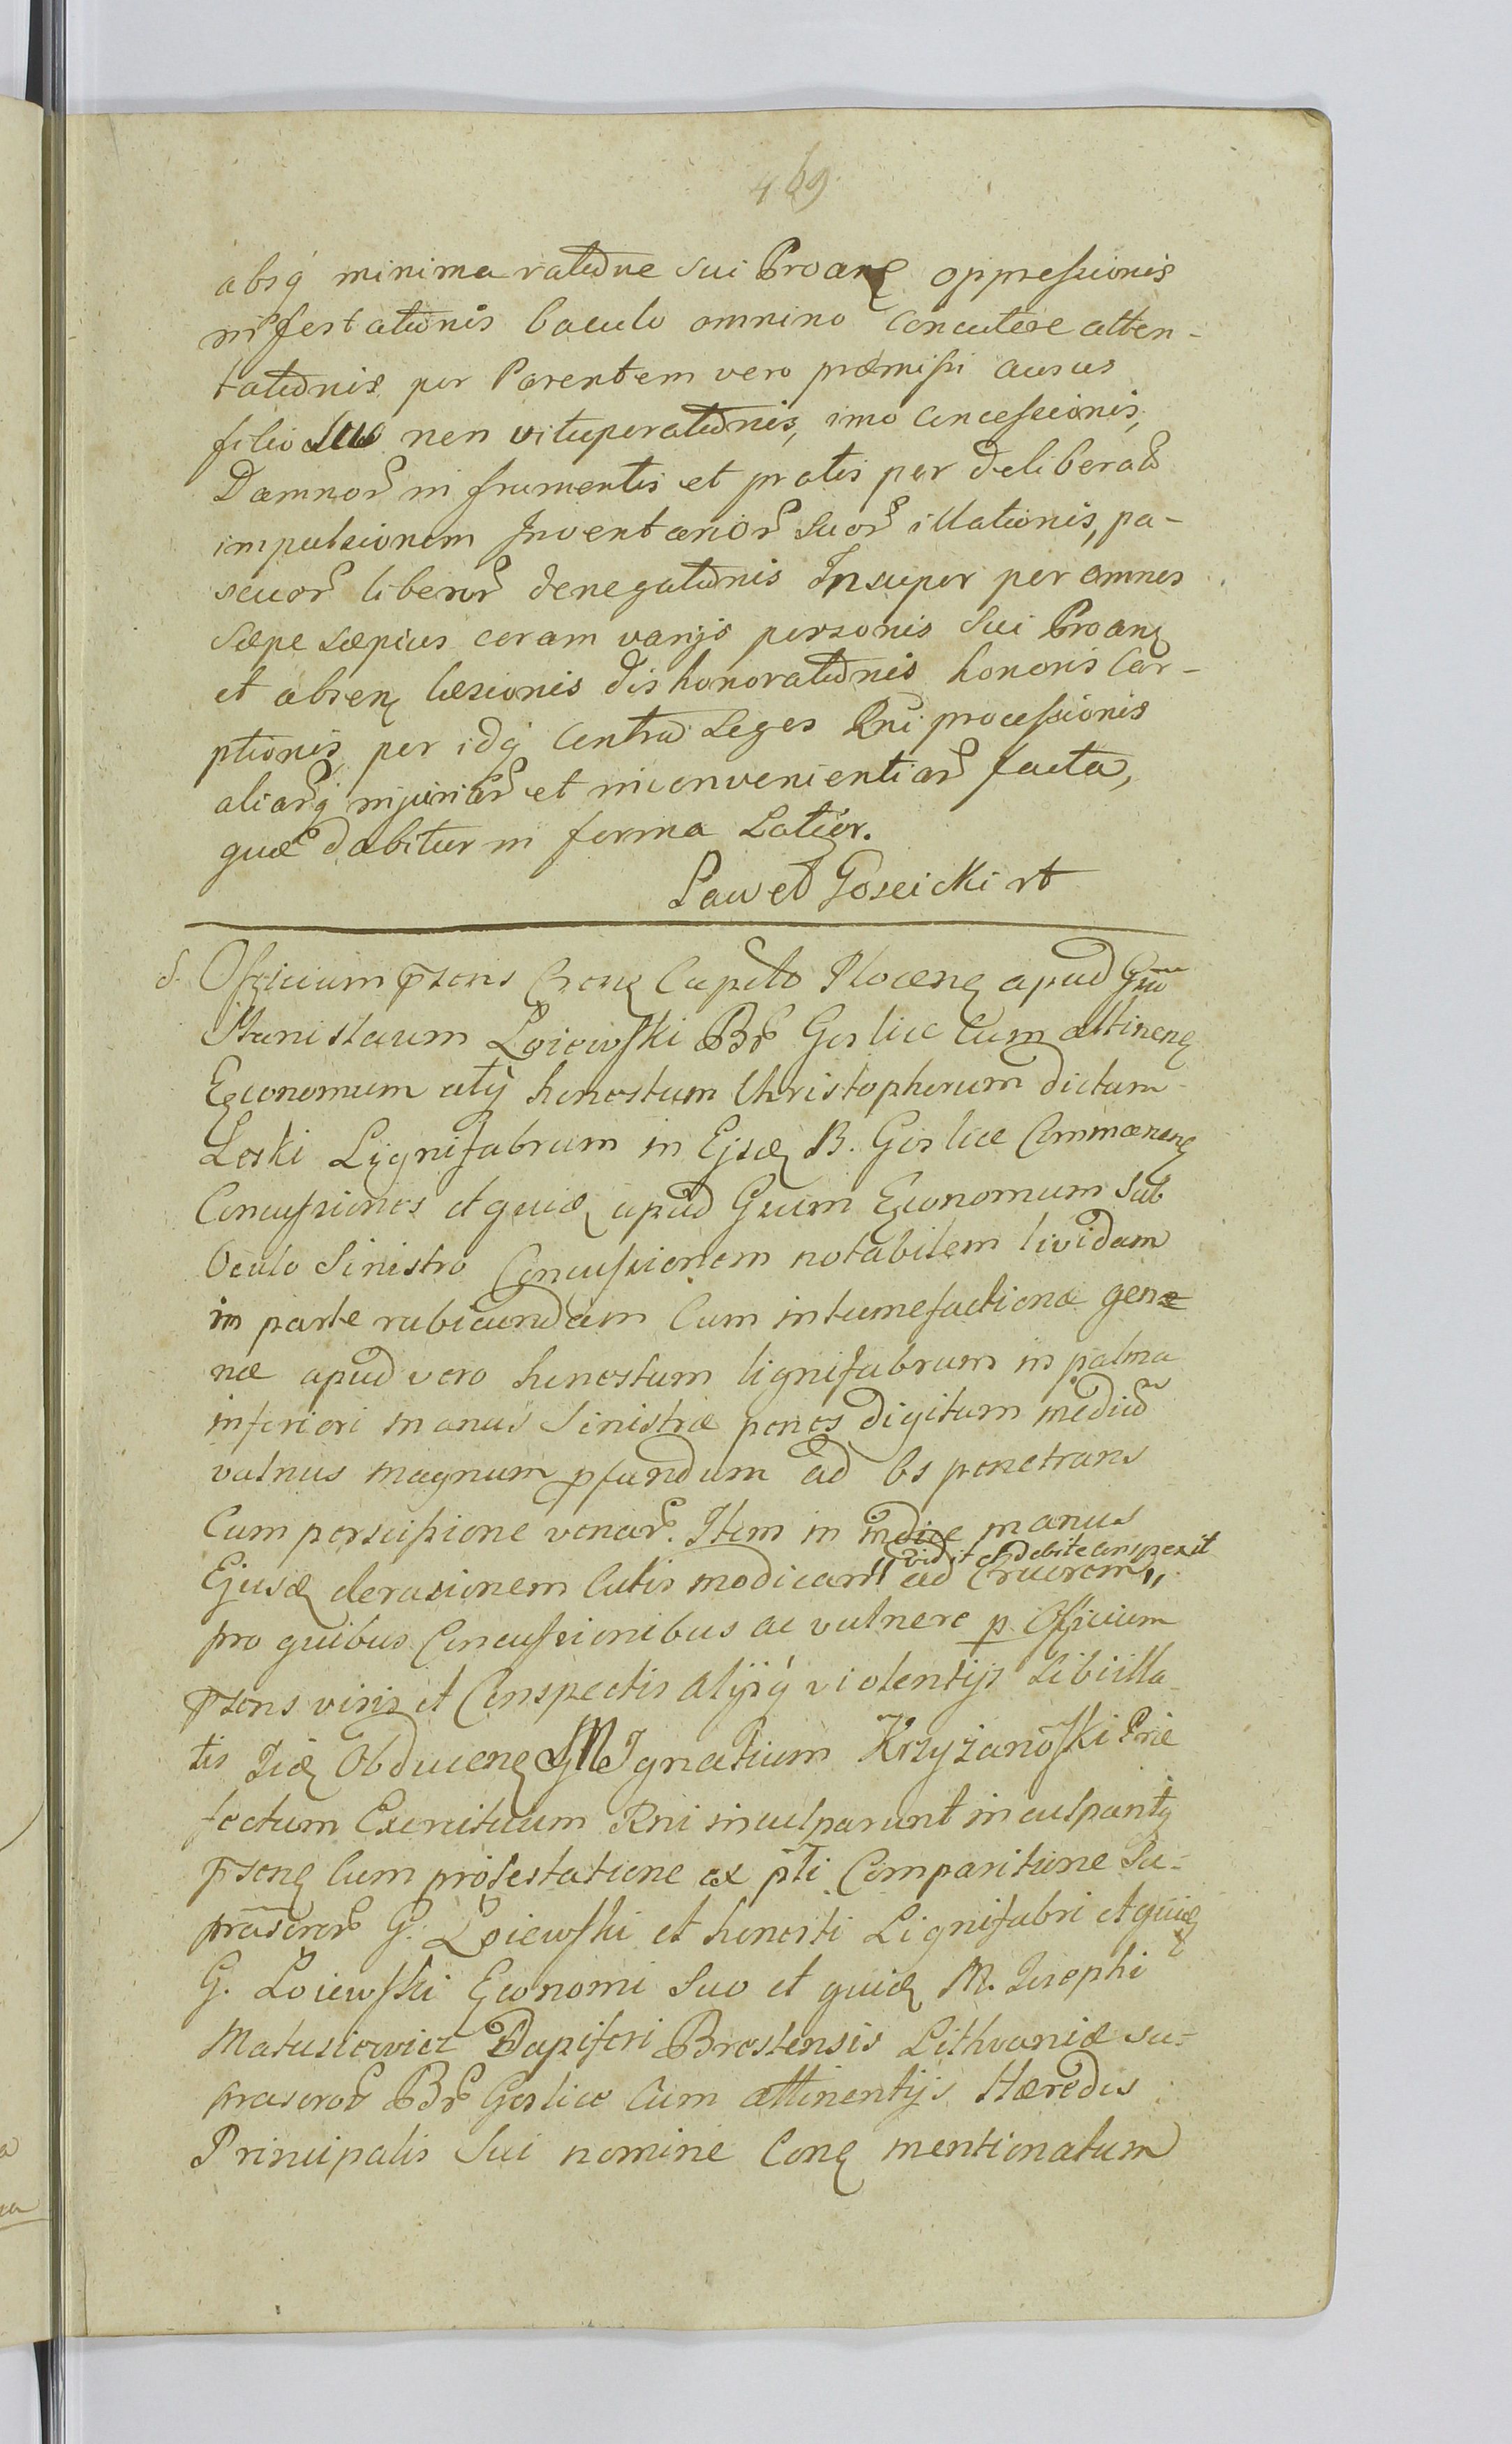 469
absq minima ratione sui Proanę oppressionis
infestationis baculo omnino concutere atten-
tationis per Parentem vero præmissi ausus
filio suo non vituperationis, imo concessionis,
Damnor̃ in frumentis et pratis per deliberat̃
impulsionem Inventarior̃ suor̃ illationis, pa-
scuor̃ liberor̃ denegationis Insuper per omnes
sæpe sæpius coram varijs personis sui Proanę
et absenę læsionis dishonorationis honoris Car-
ptionis, per idq contra Leges Rni processionis
aliarq injuriar̃ et inconvenientiar̃ facta,
quæ dabitur in forma Latior.
Paweł Goscicki rt
S. Officium p̃sens Crenę Capitł Plocenę apud Gnu
Stanislaum Łoiewski Br̃ Gorlice Cum attinenę
Economum atq honestum Christopherum dictum
Leski Lignifabrum in Ejsdę B. Gorlice Commanenę
Concussiones et quidę apud Gnum Economum sub
Oculo Sinistro Concussionem notabilem lividam
in parte rubicundam Cum intumefactione genæ
næ apud vero honestum lignifabrum in palma
inferiori manus Sinistræ penes digitum mediũ
vulnus magnum p̃fundum ad os penetrans
Cum perscissione venar̃. Item in indice manus
vidit et debite conspexit
Ejusdę derasionem Cutis modicam " ad Cruorem,,
pro quibus Concussionibus ac vulnere p Officium
p̃sens visis et Conspectis alijsq violentijs Sibi illa-
tis Iidę Obducenę GM Ignatium Krzyżanoski Præ
fectum Exercituum Rni inculparunt inculpantq
p̃senę Cum protestatione ex p̃ti Comparitione Su-
prascror̃ G. Łoiewski et honesti Lignifabri et quidę
G. Łoiewski Economi suo et quidę M. Josephi
Matusiewicz Dapiferi Brestensis Lithvaniæ su-
prascror̃ Br̃ Gorlice Cum attinentijs Hæredis
Principalis Sui nomine Conę mentionatum